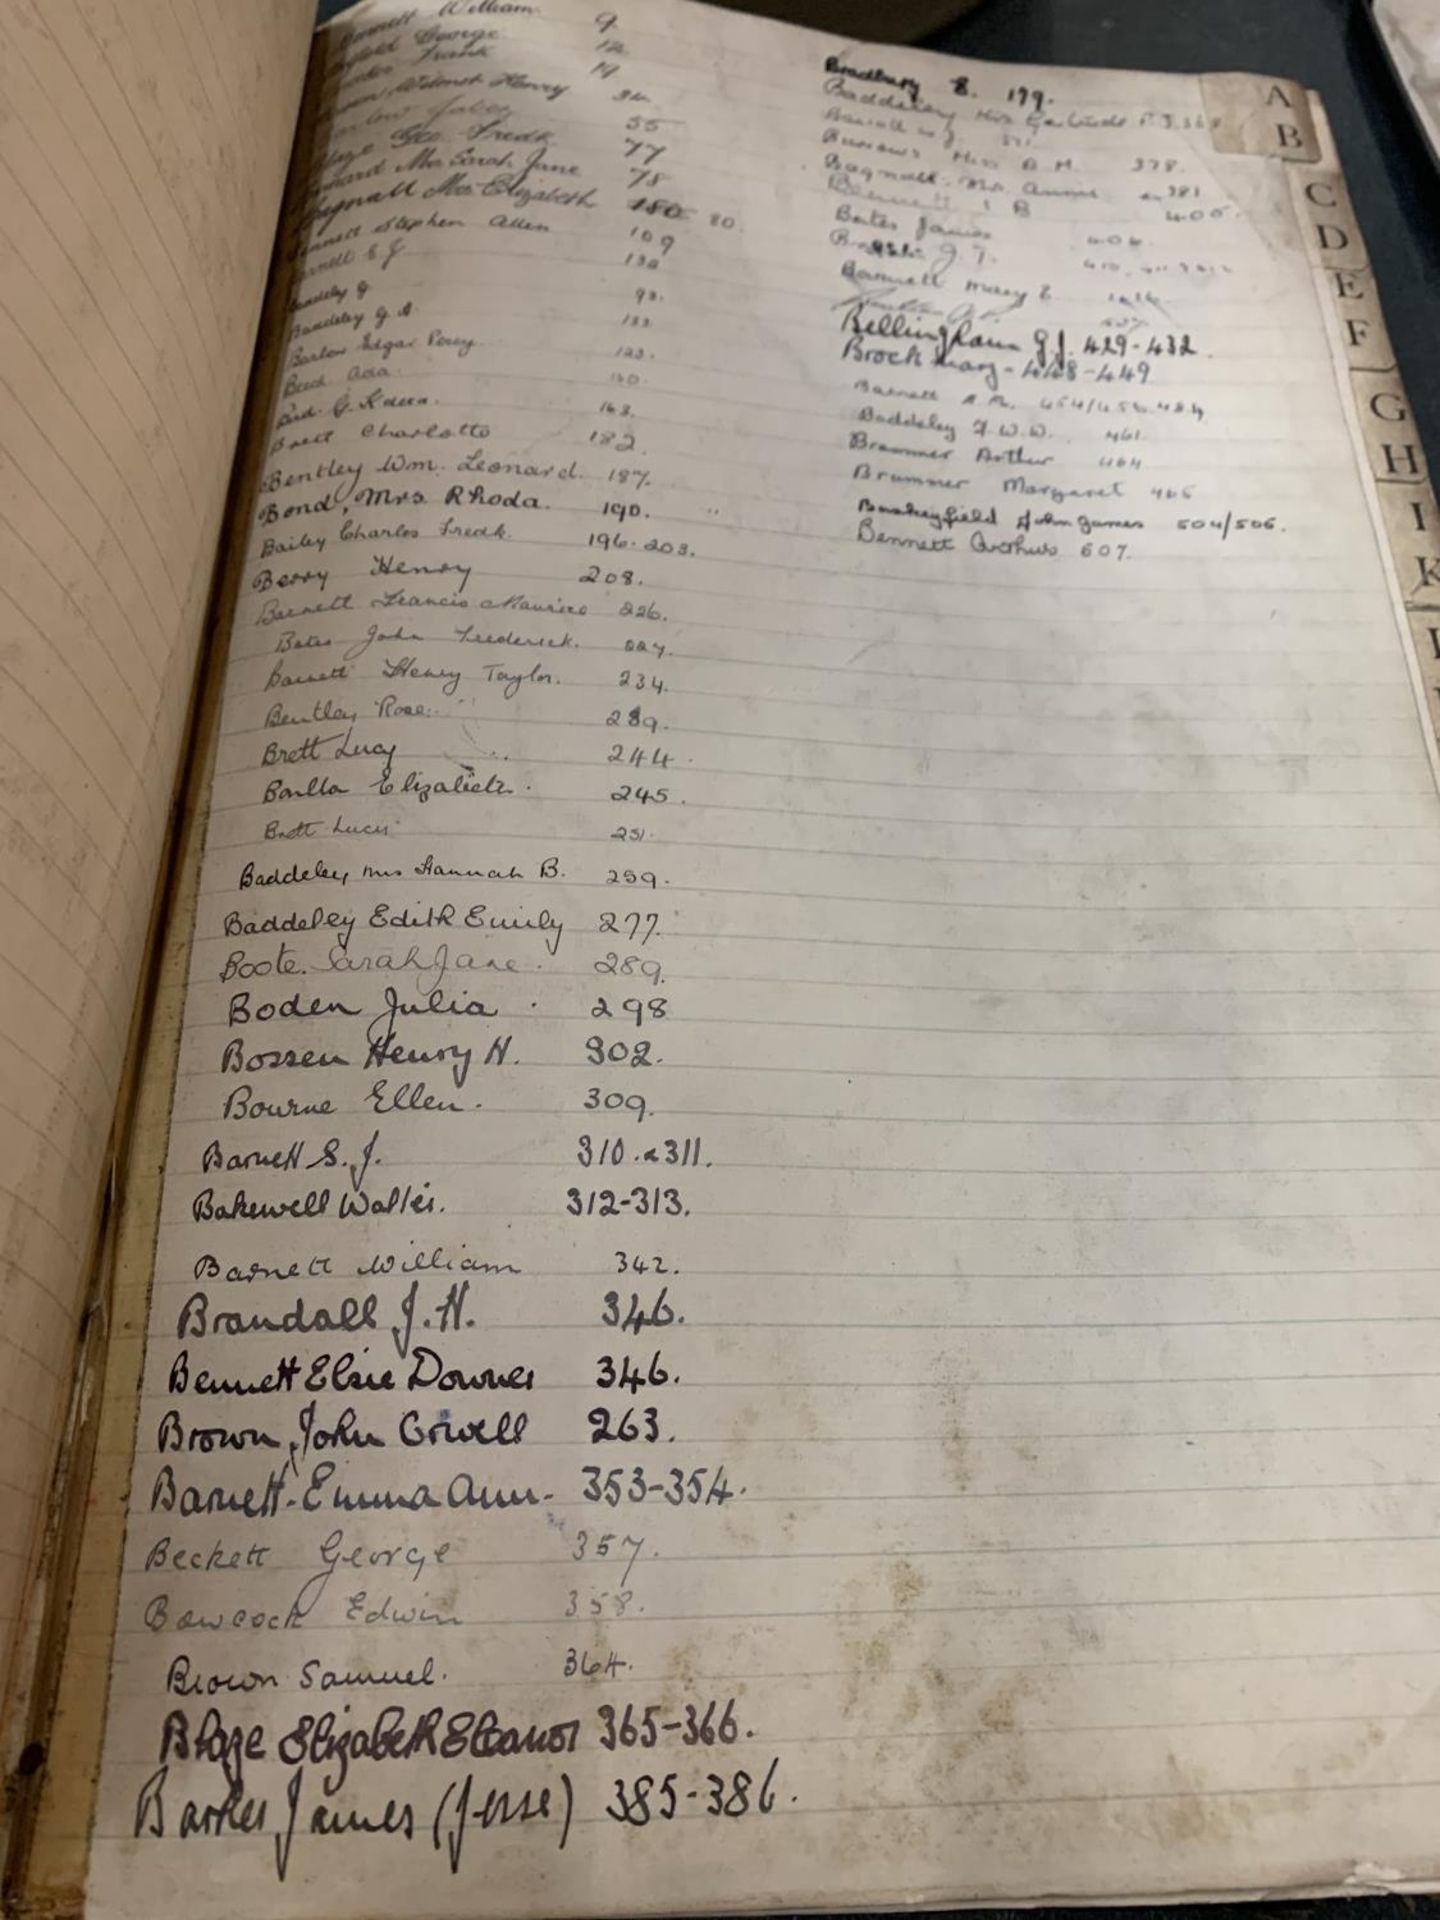 William 9
George 12
Frank 19
Wilmot Henry
55
Geo. Fredk. 77
Mrs Sarah Jane 78
Bagnall Mrs Elizabeth 180 80.
Bennett Stephen Allen 109
132
Baddeley G 98.
Baddeley G A 133.
Barlow Edgar Percy 123.
Beed Ada 160.
163.
Brett Charlotte 182.
Bentley Wm. Leonard. 187.
Bond, Mrs Rhoda. 190.
Bailey Charles Fredk. 196-203.
Berry Henry 208.
Barnett Francis Maurice 226.
Bates John Frederick. 227.
Barnett Henry Taylor. 234.
Bentley Rose. 239.
Brett Lucy 244.
Elizabeth. 245.
Brett Lucy 251.
Baddeley Mrs Hannah B. 259.
Baddeley Edith Emily 277.
Boote. Sarah Jane. 289.
Boden Julia. 298
Bossen Henry H. 302.
Bourne Ellen. 309.
Barnett S. J. 310.&311.
Bakewell Walter. 312-313.
Barnett William 342.
Brandall J. H. 346.
Bennett Elsie Downes 346.
Brown, John Orwell 263.
Barnett. Emma Ann. 353-354.
Beckett George 357.
Bowcock Edwin 358.
Brown Samuel. 364.
Blaze Elizabeth Eleanor 365-366.
Barker James (Jesse) 385-386.
Bradbury 179.
Baddeley Mrs Gertrude
Burrows Miss 378.
Bagnall. Mrs Annie 381
Bennett 405.
Bates James 406.
J. T.
Barnett Mary E
Bellingham G J. 429-432.
Brock Mary - 448-449
Barnett
Baddeley F. W. W. 461.
Brammer Arthur 464
Brummer Margaret 465
Baskeyfield John James 504/506.
Bennett Arthur 507.
A
B
C
D
E
F
G
H
I
K
L